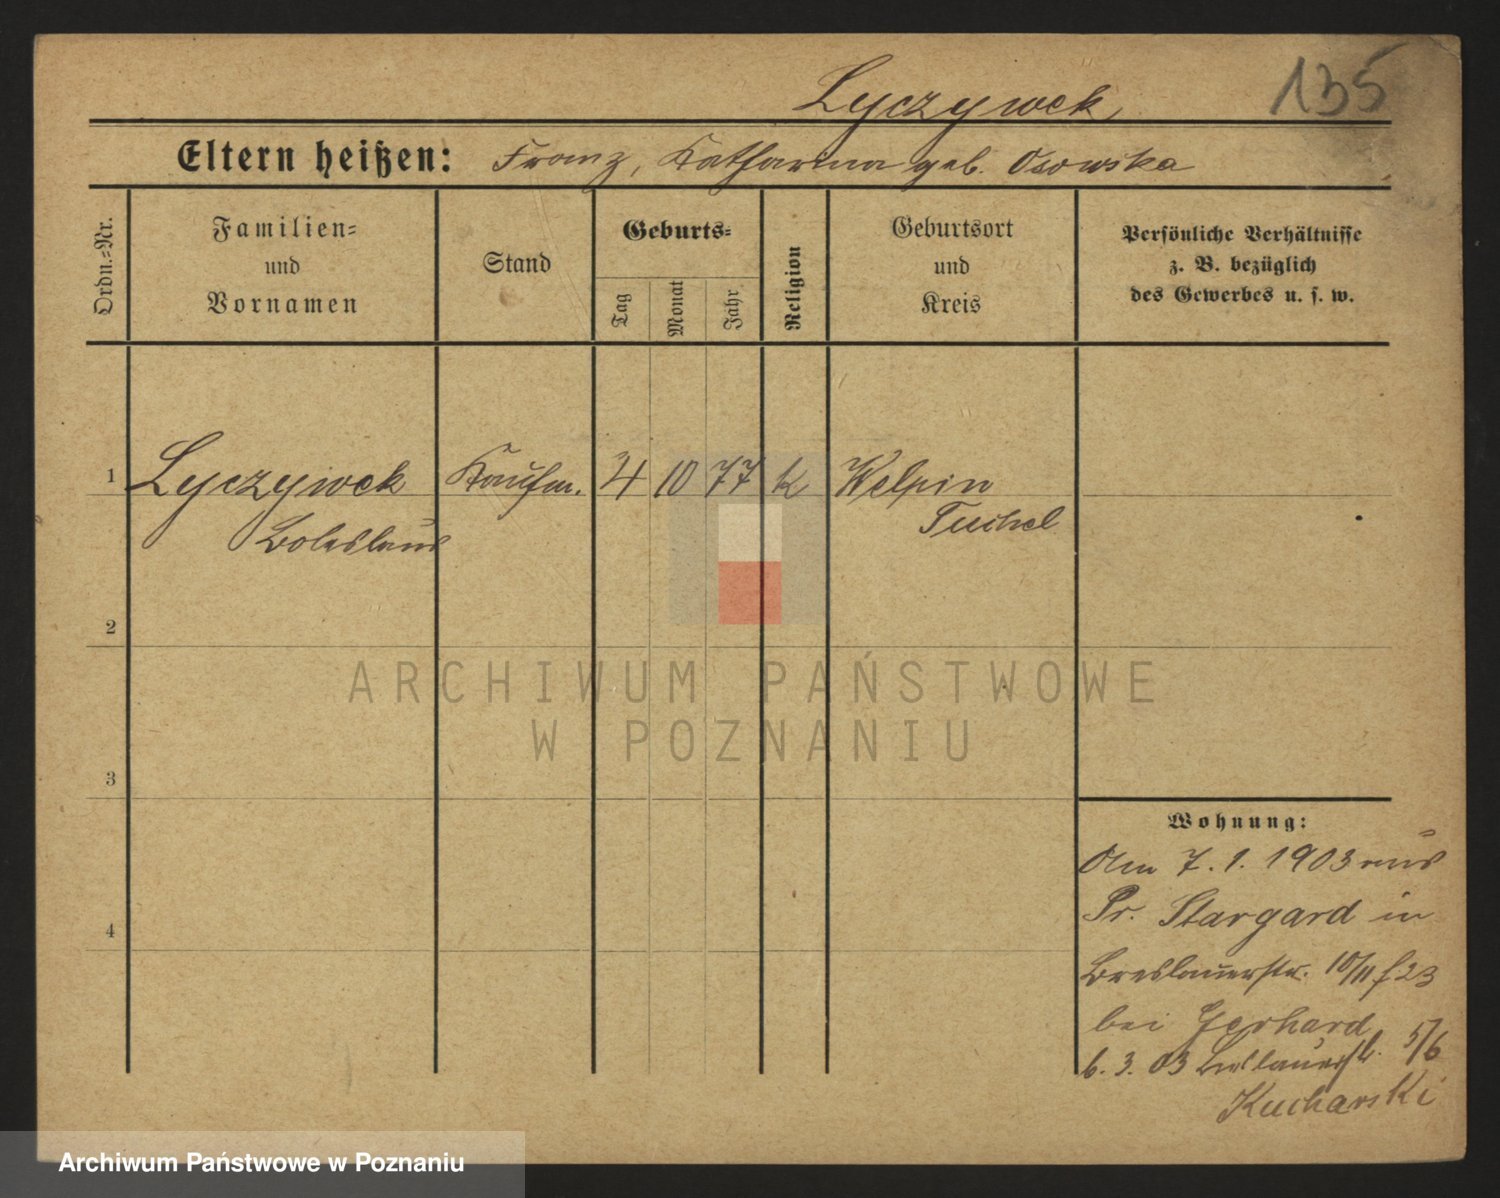 Lyczywek
135
Eltern heißen: Franz, Katharina geb. Osowska
Ordn.=Nr.
Familien=
und
Vornamen
Stand
Geburts=
Tag
Monat
Jahr
Religion
Geburtsort
und
Kreis
Persönliche Verhältnisse
z. B. bezüglich
des Gewerbes u. s. w.
1 Lyczywek Kaufm. 4 10 77 k Kelpin
Boleslaus Tuchel
2
ARCHIWUM PAŃSTWOWE
W POZNANIU
3
Wohnung:
Am 7. 1. 1903 aus
Pr. Stargard in
4
Breslauerstr. 10/11 f 23
bei Gerhard
6. 3. 03 Breslauerstr. 5/6
Kucharski
Archiwum Państwowe w Poznaniu